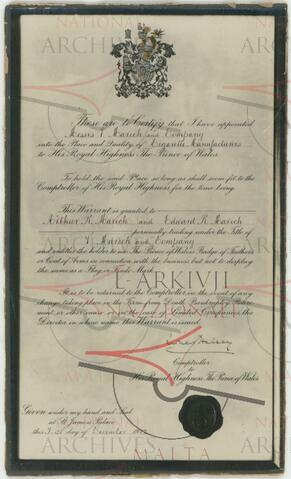 NATIONAL
ARCHIVES
These are to Certify that I have appointed
Messrs V. Marich and Company
into the Place and Quality of Cigarette Manufacturers
to His Royal Highness The Prince of Wales
To hold the said Place so long as shall seem fit to the
Comptroller of His Royal Highness for the time being.
This Warrant is granted to
Arthur R. Marich and Edward R. Marich
personally trading under the Title of
V. Marich and Company
and entitles the holder to use The Prince of Wales's Badge of Feathers
or Coat of Arms in connection with the business but not to display
the same as a Flag or Trade Mark.
ARKIVJI
It is to be returned to the Comptroller in the event of any
change taking place in the Firm from Death, Bankruptcy, Retire-
ment, or other cause, or in the case of Limited Companies, the
Director in whose name this Warrant is issued.
Comptroller
to
His Royal Highness The Prince of Wales
Given under my hand and Seal
at St James's Palace
this day of December
NATIONAL
ARCHIVES
MALTA